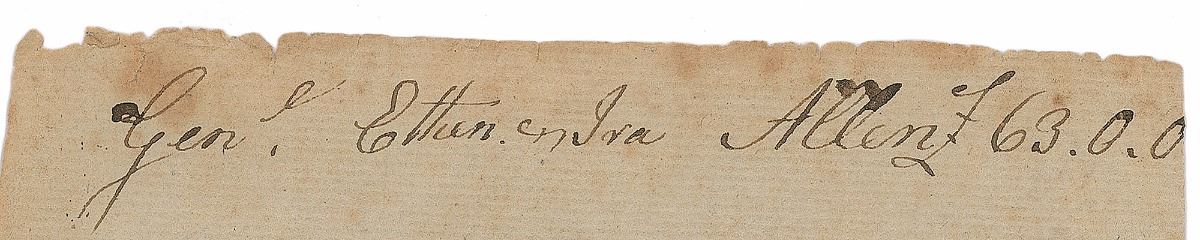 Genl. Ethen. & Ira Allen £ 63.0.0